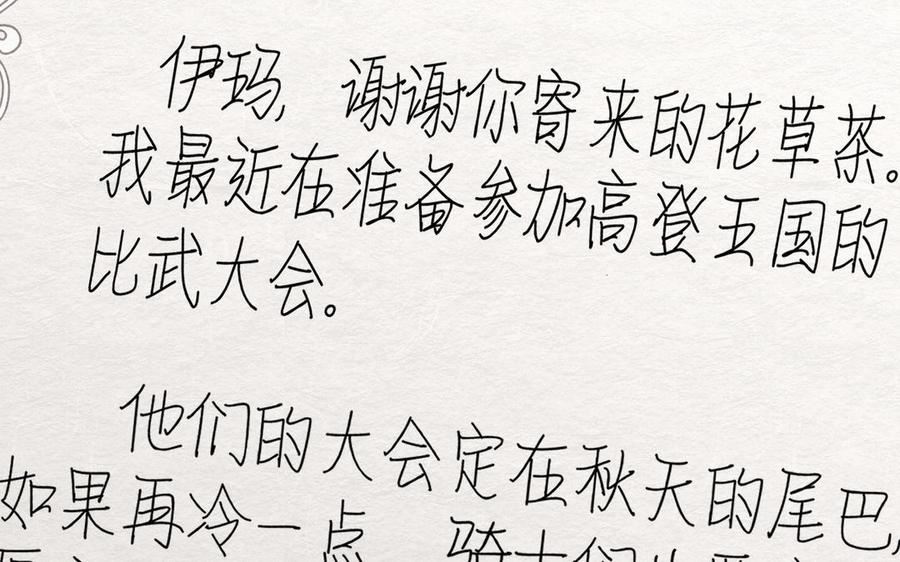 伊玛，谢谢你寄来的花草茶。
我最近在准备参加高登王国的
比武大会。
他们的大会定在秋天的尾巴，
如果再冷一点 骑士们